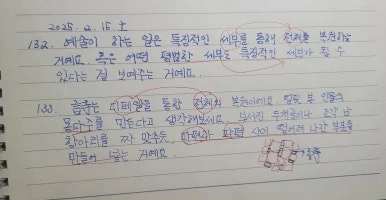 2025. 2. 15. 土
132. 예술이 하는 일은 특징적인 세부를 통해 전체를 복원하는
거예요. 혹은 어떤 평범한 세부도 특징적인 세부가 될 수
있다는 걸 보여주는 거예요.
133. 글쓰는 디테일을 통한 전체의 복원이에요. 얼핏 본 인물의
몽타주를 만든다고 생각해보세요. 부서진 두개골이나 조각난
항아리를 짜 맞추듯, 한편과 파편 사이 떨어져 나간 부분을
만들어 넣는 거예요.